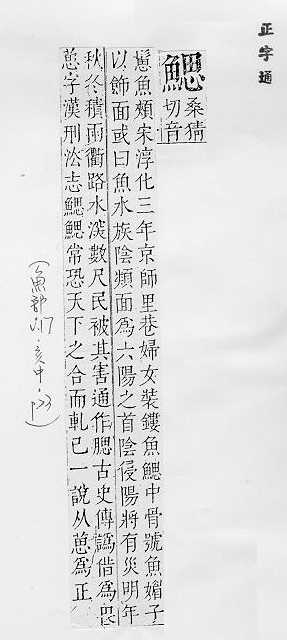 正字通
鰓
桑猜
切音
魚頰宋淳化三年京師里巷婦女裝鏤魚鰓中骨號魚媚子
以飾面或曰魚水族陰類面爲六陽之首陰侵陽將有災明年
秋冬積雨衢路水深數尺民被其害通作腮古史傳譌借爲畏
葸字漢刑法志鰓鰓常恐天下之合而軋已一說从葸爲正
(魚部 v.17・亥中・p23)